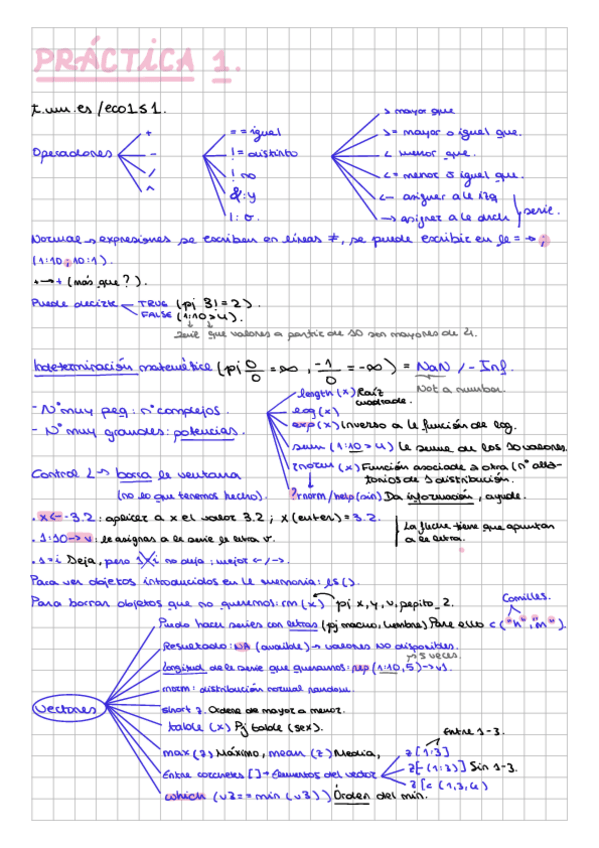 PRÁCTICA 1.
t.um.es/eco1s1.
> mayor que
+ == igual >= mayor o igual que.
Operadores - != distinto < menor que.
/ ! no <= menor o igual que.
^ &: y <- asignar a le izq
|: o. -> asigner a le drch serie.
Normal → expresiones se escriben en líneas ≠, se puede escribir en le = → ;
(1:10 ; 10:1).
+ → + (más que?).
Puede decirte TRUE (pi 3!=2).
FALSE (1:10>4).
Serie que valores a partir de 10 sen mayores de 4.
Indeterminación matemática (pj 0/0 = ∞, -1/0 = -∞) = NaN / -Inf.
Not a number.
length (x) Raíz cuadrade.
- Nº muy peq: nº complejos. log(x)
- Nº muy grandes: potencias. exp(x) Inverso a le función de log.
sum (1:10 > 4) le sume de los 10 valores.
Control L → borra le ventana rnorm (x) Función asociade a otra (nº aleatorios de 1 distribución.
(no lo que tenemos hecho). ?rnorm/help(sin) Da información, ayude.
. x<- -3.2: aplicar a x el valor 3.2; x (enter) = 3.2.
La fleche tiene que apuntar a le letra.
. 1:10 -> v: le asignas a le serie le letra v.
. 1=i Deja, pero 1 i no deja: mejor <- /->.
Para ver objetos introducidos en le memoria: ls().
Para borrar objetos que no queremos: rm (x) pj x, y, v, pepito_2.
Comillas.
Puedo hacer series con letras (pj macho, hembra) Para ello c("h", "m").
Resultado: NA (avaible) → valores no disponibles.
→ 5 veces.
longitud de le serie que queramos: rep (1:10,5)->v1.
rnorm: distribución normal random.
Vectores short z. Ordena de mayor a menor.
table (x) Pj table (sex).
Entre 1-3.
max (z) Máximo, mean (z) Media, z[1:3]
Entre corchetes [] → Elementos del vector z[-(1:3)] Sin 1-3.
z[c(1,3,4)
which (v3 == min (v3)) Órden del min.